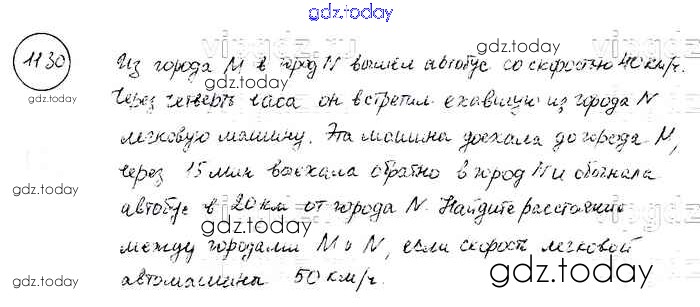 gdz.today
1130
Из города М в город N вышел автобус со скоростью 40 км/ч.
gdz.today
Через четверть часа он встретил ехавшую из города N
легковую машину. Эта машина доехала до города М,
через 15 мин выехала обратно в город N и обогнала
gdz.today
автобус в 20 км от города N. Найдите расстояние
между городами М и N, если скорость легковой
gdz.today
автомашины 50 км/ч.
gdz.today